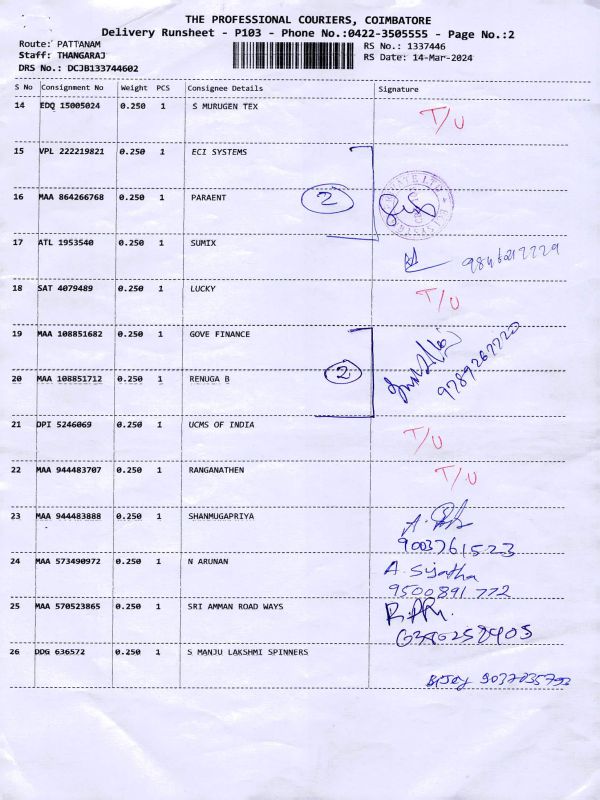 THE PROFESSIONAL COURIERS, COIMBATORE
Delivery Runsheet - P103 - Phone No.:0422-3505555 - Page No.:2
Route: PATTANAM RS No.: 1337446
Staff: THANGARAJ RS Date: 14-Mar-2024
DRS No.: DCJB133744602
S No Consignment No Weight PCS Consignee Details Signature
14 EDQ 15005024 0.250 1 S MURUGEN TEX T/U
15 VPL 222219821 0.250 1 ECI SYSTEMS
16 MAA 864266768 0.250 1 PARAENT 2
17 ATL 1953540 0.250 1 SUMIX
18 SAT 4079489 0.250 1 LUCKY T/U
19 MAA 108851682 0.250 1 GOVE FINANCE
20 MAA 108851712 0.250 1 RENUGA B 2 9789267720
21 DPI 5246069 0.250 1 UCMS OF INDIA T/U
22 MAA 944483707 0.250 1 RANGANATHEN T/U
23 MAA 944483888 0.250 1 SHANMUGAPRIYA
9003761523
24 MAA 573490972 0.250 1 N ARUNAN A. Sujatha
9500891772
25 MAA 570523865 0.250 1 SRI AMMAN ROAD WAYS
26 DDG 636572 0.250 1 S MANJU LAKSHMI SPINNERS
BiJoy 9037035793